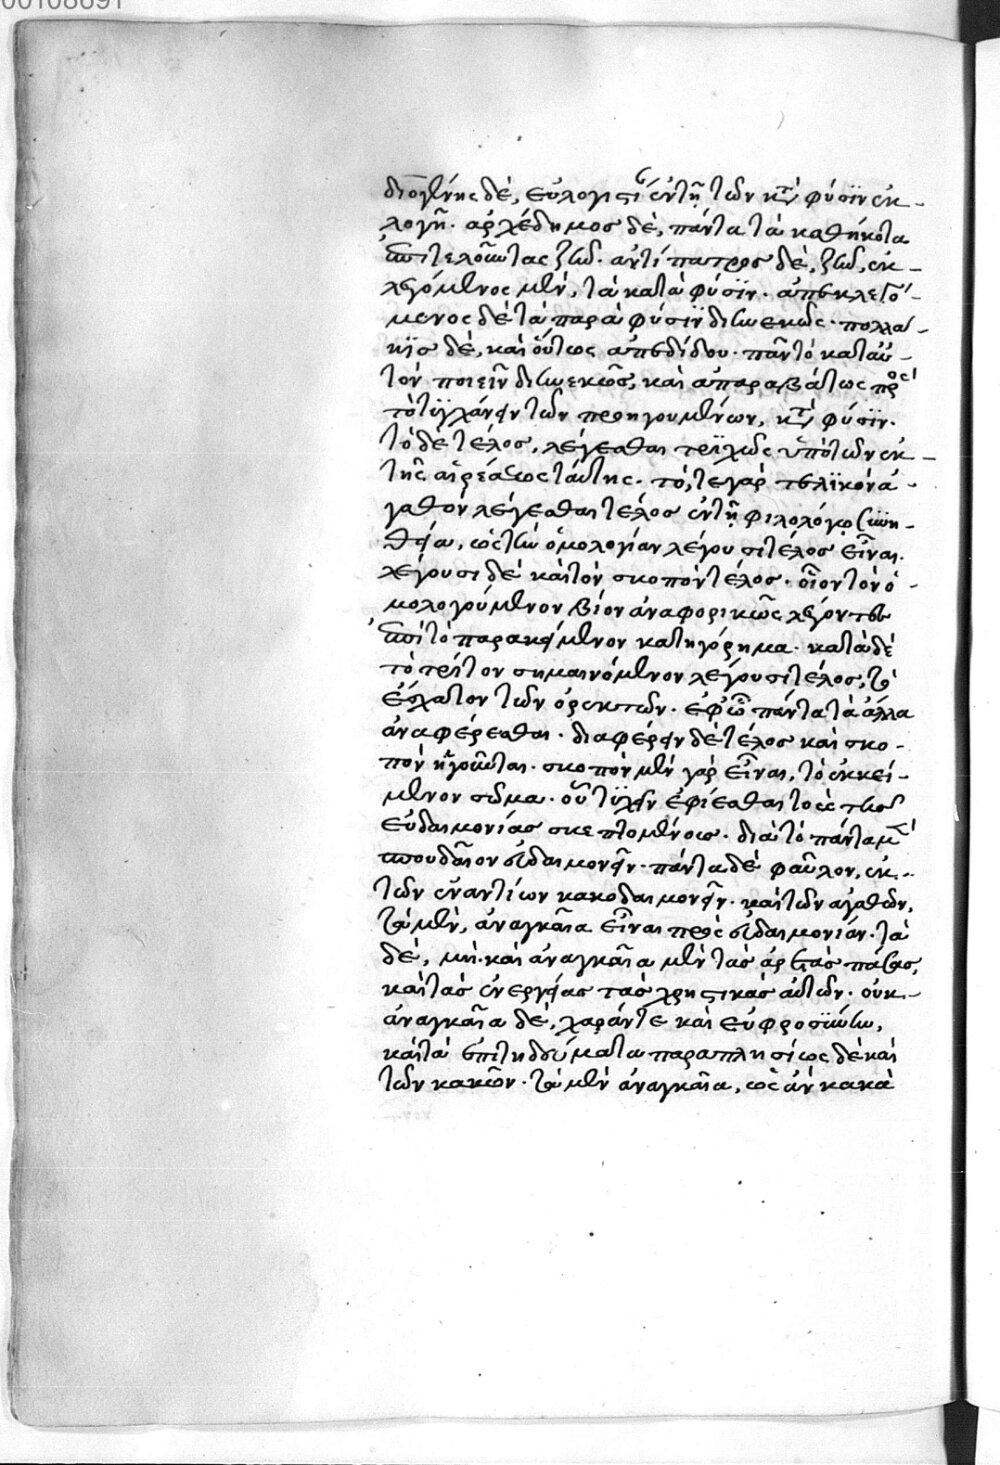 00108691
διογένης δὲ, εὐλογιστ ἐν τῆ τῶν κτ φύσϊν ἐκ-
λογῆ. ἀρχέδημος δὲ, πάντα τὰ καθήκοντα
ἐπιτελοῦντας ζῆν. ἀντίπατρος δὲ, ζῆν, ἐκ-
λεγόμενος μὲν, τὰ κατὰ φύσϊν. ἀπεκλεγό-
μενος δὲ τὰ παρὰ φύσϊν διηνεκῶς. πολλά-
κϊς δὲ, καὶ οὕτως ἀπεδίδου. πᾶν τὸ κατ αὑ-
τὸν ποιεῖν διηνεκῶς, καὶ ἀπαραβάτως πρὸς
τὸ τϋγχάνειν τῶν προηγουμένων, κτ φύσϊν.
τὸ δὲ τέλος, λέγεσθαι τρϊχῶς ὑπὸ τῶν ἐκ
τῆς αἱρέσεως ταύτης. τό, τε γὰρ τελϊκὸν ἀ-
γαθὸν λέγεσθαι τέλος ἐν τῆ φιλολόγω σϋνη-
θεία, ὡς τὴν ὁμολογίαν λέγουσι τέλος εἶναι.
λέγουσι δὲ καὶ τὸν σκοπὸν τέλος. οἷον τὸν ὁ-
μολογούμενον βίον ἀναφορικῶς λέγοντες
ἐπὶ τὸ παρακείμενον κατηγόρημα. κατὰ δὲ
τὸ τρίτον σημαινόμενον λέγουσι τέλος, τὸ
ἔσχατον τῶν ὀρεκτῶν. ἐφ ὧ πάντα τὰ ἄλλα
ἀναφέρεσθαι. διαφέρειν δὲ τέλος καὶ σκο-
πὸν ἡγοῦνται. σκοπὸν μὲν γὰρ εἶναι, τὸ ἐκκεί-
μενον σῶμα. οὗ τϋχεῖν ἐφίεσθαι τοὺς τῆς
εὐδαιμονίας σκεπτομένοις. διὰ τὸ πάντα μ
σπουδαῖον εὐδαιμονεῖν. πάντα δὲ φαῦλον, ἐκ
τῶν ἐναντίων κακοδαιμονεῖν. καὶ τῶν ἀγαθῶν,
τὰ μὲν, ἀναγκαῖα εἶναι πρὸς εὐδαιμονίαν. τὰ
δὲ, μή. καὶ ἀναγκαῖα μὲν τὰς ἀρετὰς πάσας,
καὶ τὰς ἐνεργείας τὰς χρηστικὰς αὐτῶν. οὐκ
ἀναγκαῖα δὲ, χαράν τε καὶ εὐφροσϋνην,
καὶ τὰ ἐπιτηδεύματα παραπλησίως δὲ καὶ
τῶν κακῶν. τὰ μὲν ἀναγκαῖα, ὡς ἂν κακὰ